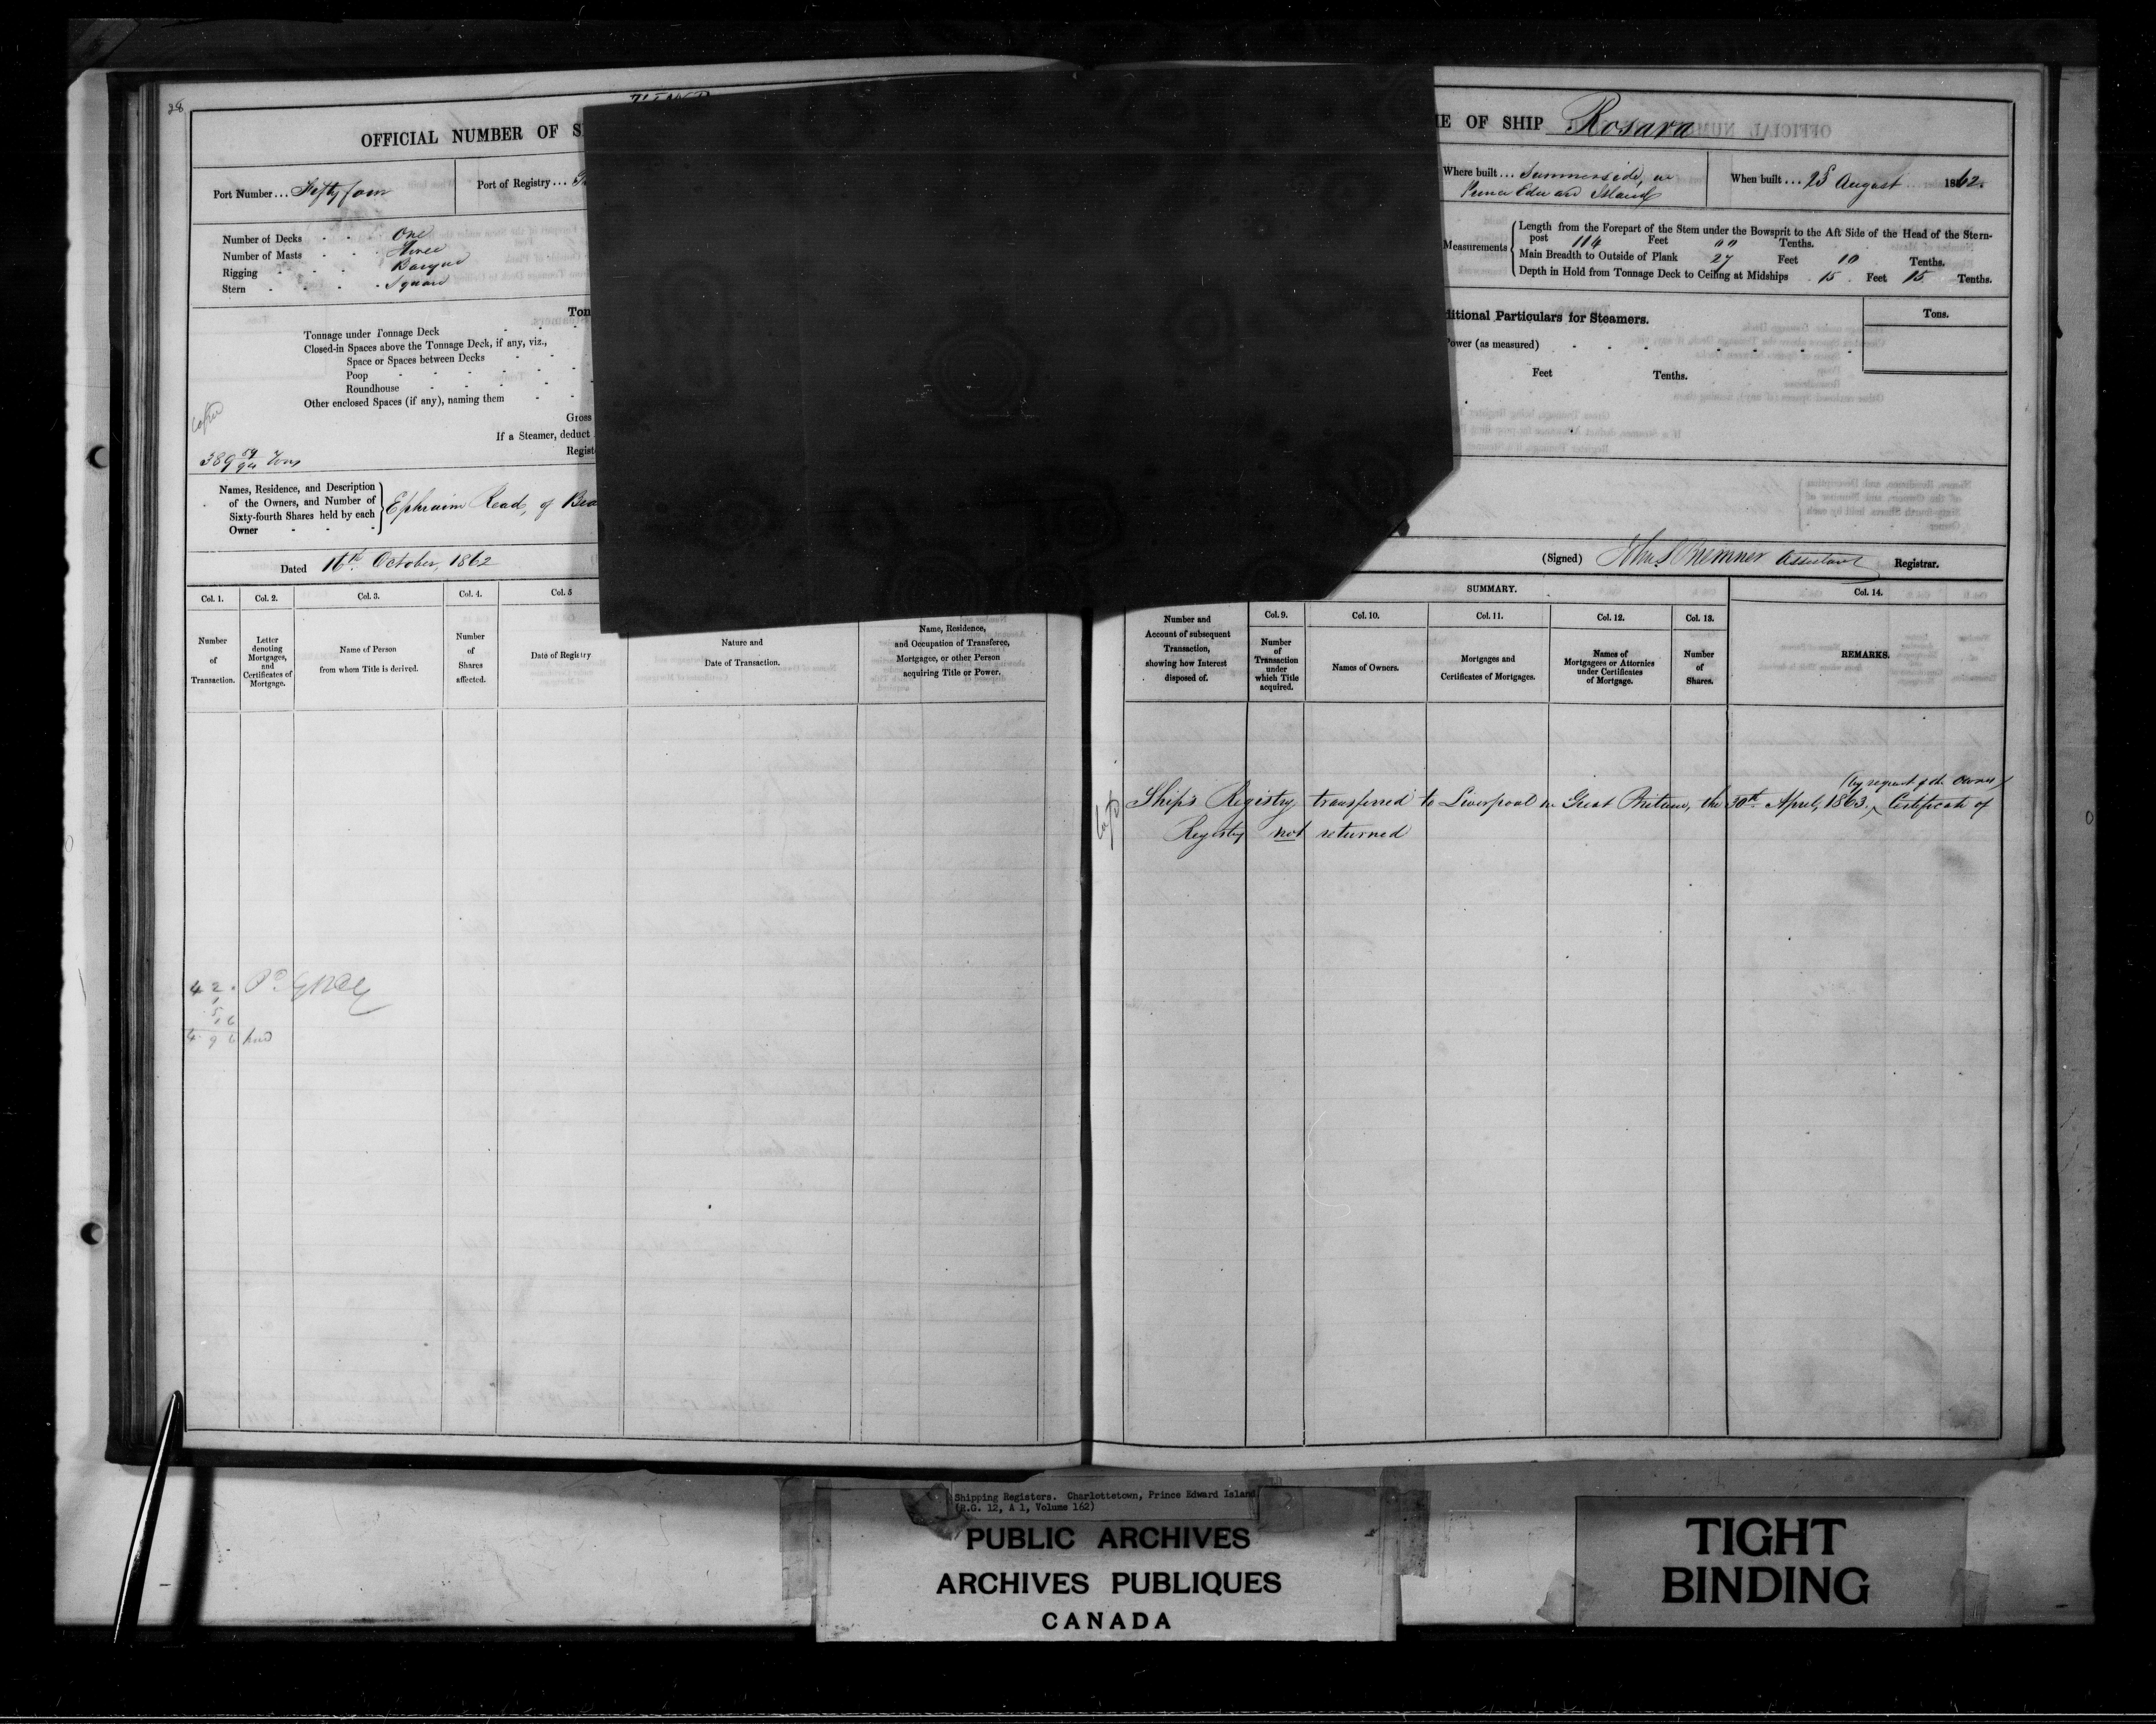 38
OFFICIAL NUMBER OF S
Port Number... Fifty four
Port of Registry...
Number of Decks One
Number of Masts Three
Rigging Barque
Stern Square
Ton
Tonnage under Tonnage Deck
Closed-in Spaces above the Tonnage Deck, if any, viz.,
Space or Spaces between Decks
Poop
Roundhouse
Other enclosed Spaces (if any), naming them
Gross
If a Steamer, deduct
Regist
389 59/94 Tons
Names, Residence, and Description
of the Owners, and Number of
Sixty-fourth Shares held by each
Owner
Ephraim Read, of
Dated 16th October, 1862
Col. 1. Col. 2. Col. 3. Col. 4. Col. 5
Number of Transaction.
Letter denoting Mortgages, and Certificates of Mortgage.
Name of Person from whom Title is derived.
Number of Shares affected.
Date of Registry
Nature and Date of Transaction.
Name, Residence, and Occupation of Transferee, Mortgagee, or other Person acquiring Title or Power.
42.
1
5
16
496
ME OF SHIP Rosara
Where built... Summerside, in
Prince Edward Island
When built... 25 August 1862.
Measurements
Length from the Forepart of the Stem under the Bowsprit to the Aft Side of the Head of the Stern-
post 114 Feet Tenths.
Main Breadth to Outside of Plank 27 Feet 10 Tenths.
Depth in Hold from Tonnage Deck to Ceiling at Midships 15 Feet 15 Tenths.
ditional Particulars for Steamers.
Tons.
Power (as measured)
Feet Tenths.
(Signed) Bremner Assistant Registrar.
SUMMARY.
Col. 14.
Number and Account of subsequent Transaction, showing how Interest disposed of.
Col. 9. Col. 10. Col. 11. Col. 12. Col. 13.
Number of Transaction under which Title acquired.
Names of Owners.
Mortgages and Certificates of Mortgages.
Names of Mortgagees or Attornies under Certificates of Mortgage.
Number of Shares.
REMARKS.
(by request of the Owner)
Ship's Registry transferred to Liverpool in Great Britain, the 30th April, 1863. Certificate of
Registry not returned
Shipping Registers. Charlottetown, Prince Edward Island
(R.G. 12, A 1, Volume 162)
PUBLIC ARCHIVES
ARCHIVES PUBLIQUES
CANADA
TIGHT
BINDING